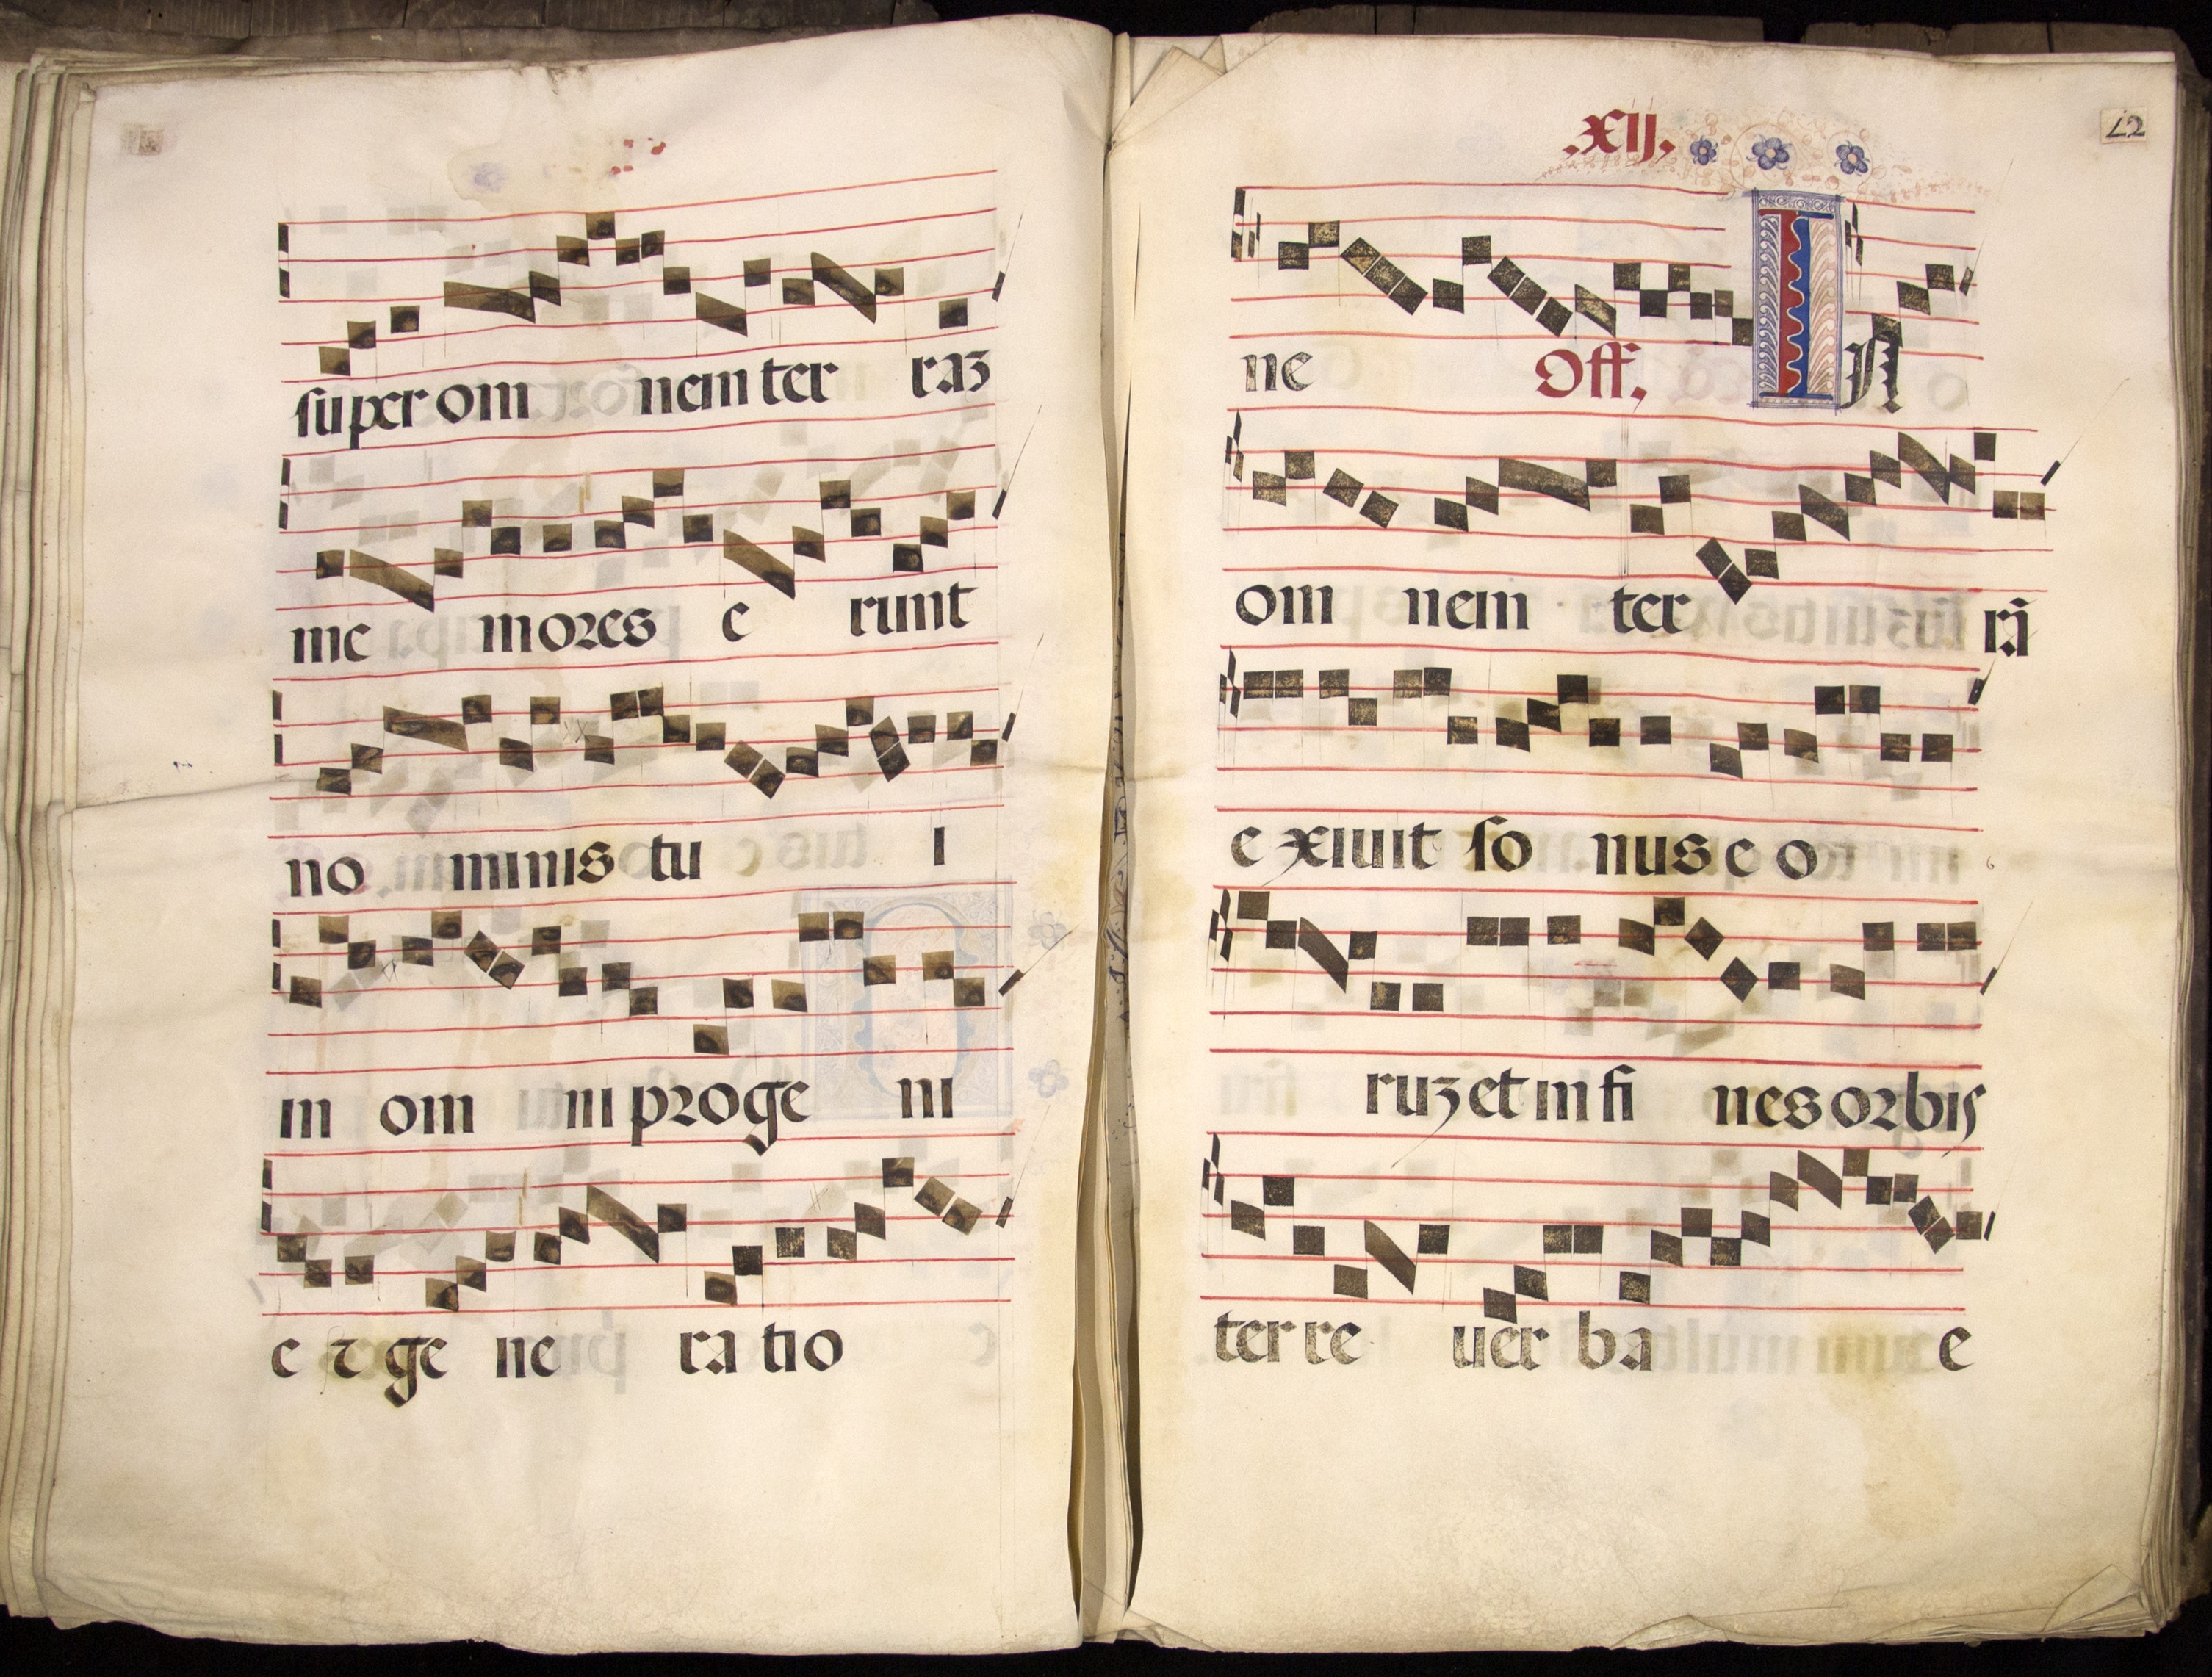 super om nem ter raʒ
me mores e runt
no minis tu i
in om ni proge ni
e ⁊ ge ne ra tio
.XIJ.
42
ne Off. IN
om nem ter rā
e xiuit so nus e o
ruʒ et in fi nes orbis
ter re uer ba e